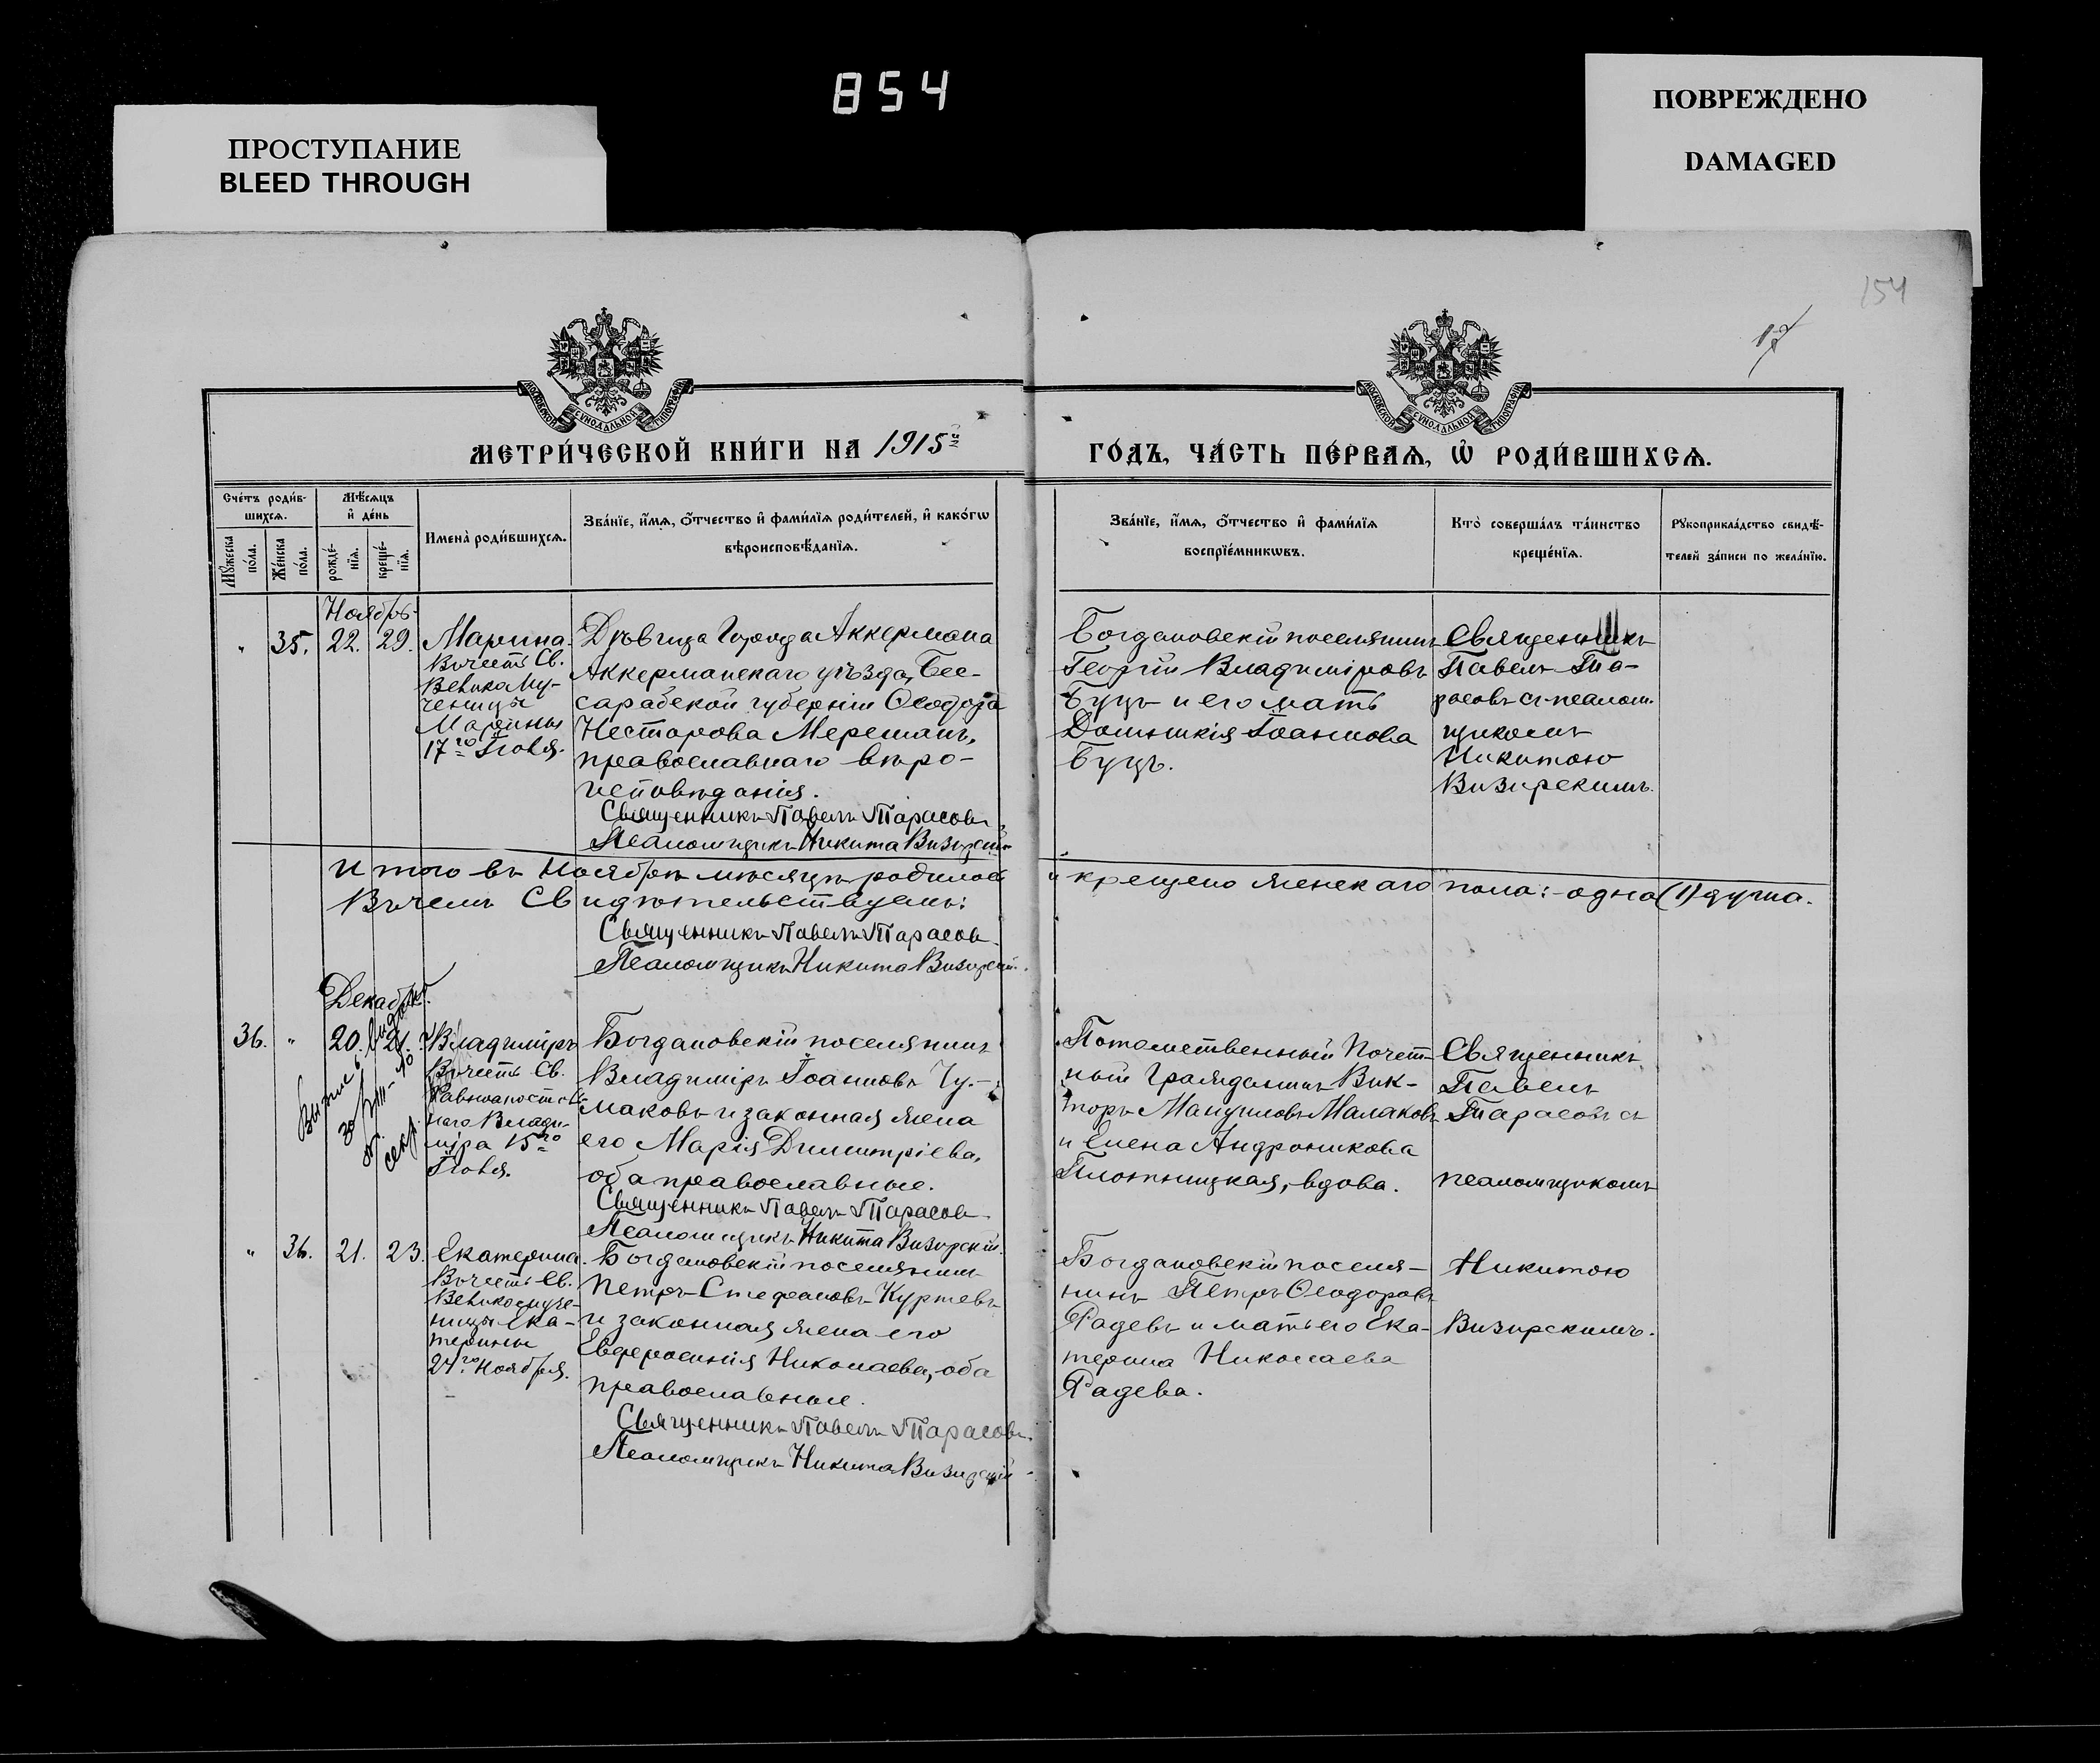 854
ПРОСТУПАНИЕ
BLEED THROUGH
ПОВРЕЖДЕНО
DAMAGED
154
17
МОСКОВСКОЙ СУНОДАЛЬНОЙ ТИПОГРАФІИ
МОСКОВСКОЙ СУНОДАЛЬНОЙ ТИПОГРАФІИ
МЕТРИ́ЧЕСКОЙ КНИ́ГИ НА 1915
ГО́ДЪ, ЧА́СТЬ ПЕ́РВАѦ, Ѡ҆ РОДИ́ВШИХСѦ.
Сче́тъ роди́в-
шихсѧ.
Мꙋ́жеска по́ла.
Же́нска по́ла.
Мѣ́сѧцъ
и҆ де́нь
рожде́-
нїѧ.
креще́-
нїѧ.
Имена̀ роди́вшихсѧ.
Зва́нїе, и҆́мѧ, ѻ҆́тчество и҆ фами́лїѧ роди́телей, и҆ како́гѡ
вѣроисповѣ́данїѧ.
Зва́нїе, и҆́мѧ, ѻ҆́тчество и҆ фами́лїѧ
воспрїе́мникѡвъ.
Кто̀ соверша́лъ та́инство
креще́нїѧ.
Рꙋкоприкла́дство свидѣ́-
телей за́писи по жела́нїю.
Ноябрь
" 35. 22. 29.
Марина.
Въ честь Св.
Великому-
ченицы
Марины
17го Іюля.
Дѣвица Города Аккермана
Аккерманскаго уѣзда, Бес-
сарабской губерніи Ѳеодора
Несторова Мерешанъ,
православнаго вѣро-
исповѣданія.
Священникъ Павелъ Тарасовъ
Псаломщикъ Никита Визирскій
Богдановскій поселянинъ
Георгій Владиміровъ
Буцъ и его мать
Домникія Іоаннова
Буцъ.
Священникъ
Павелъ Та-
расовъ съ псалом-
щикомъ
Никитою
Визирскимъ.
Итого въ Ноябрѣ мѣсяцѣ родилось и крещено женскаго пола: одна (1) душа.
Въ чемъ Свидѣтельствуемъ:
Священникъ Павелъ Тарасовъ
Псаломщикъ Никита Визирскій.
Декабрь.
36. " 20. 21.
Владиміръ
Въ честь Св.
Равноапостоль-
наго Влади-
міра 15го
Іюля.
Богдановскій поселянинъ
Владиміръ Іоанновъ Чу-
маковъ и законная жена
его Марія Димитріева,
оба православные.
Священникъ Павелъ Тарасовъ
Псаломщикъ Никита Визирскій.
Потомственный Почет-
ный Гражданинъ Вик-
торъ Мануиловъ Малаковъ
и Елена Андроникова
Плотницкая, вдова.
Священникъ
Павелъ
Тарасовъ съ
псаломщикомъ
" 36. 21. 23.
Екатерина.
Въ честь Св.
Великомуче-
ницы Ека-
терины
24го Ноября.
Богдановскій поселянинъ
Петръ Стефановъ Куртевъ
и законная жена его
Евфросинія Николаева, оба
православные.
Священникъ Павелъ Тарасовъ.
Псаломщикъ Никита Визирскій
Богдановскій поселя-
нинъ Петръ Ѳеодоровъ
Радевъ и мать его Ека-
терина Николаева
Радева.
Никитою
Визирскимъ.